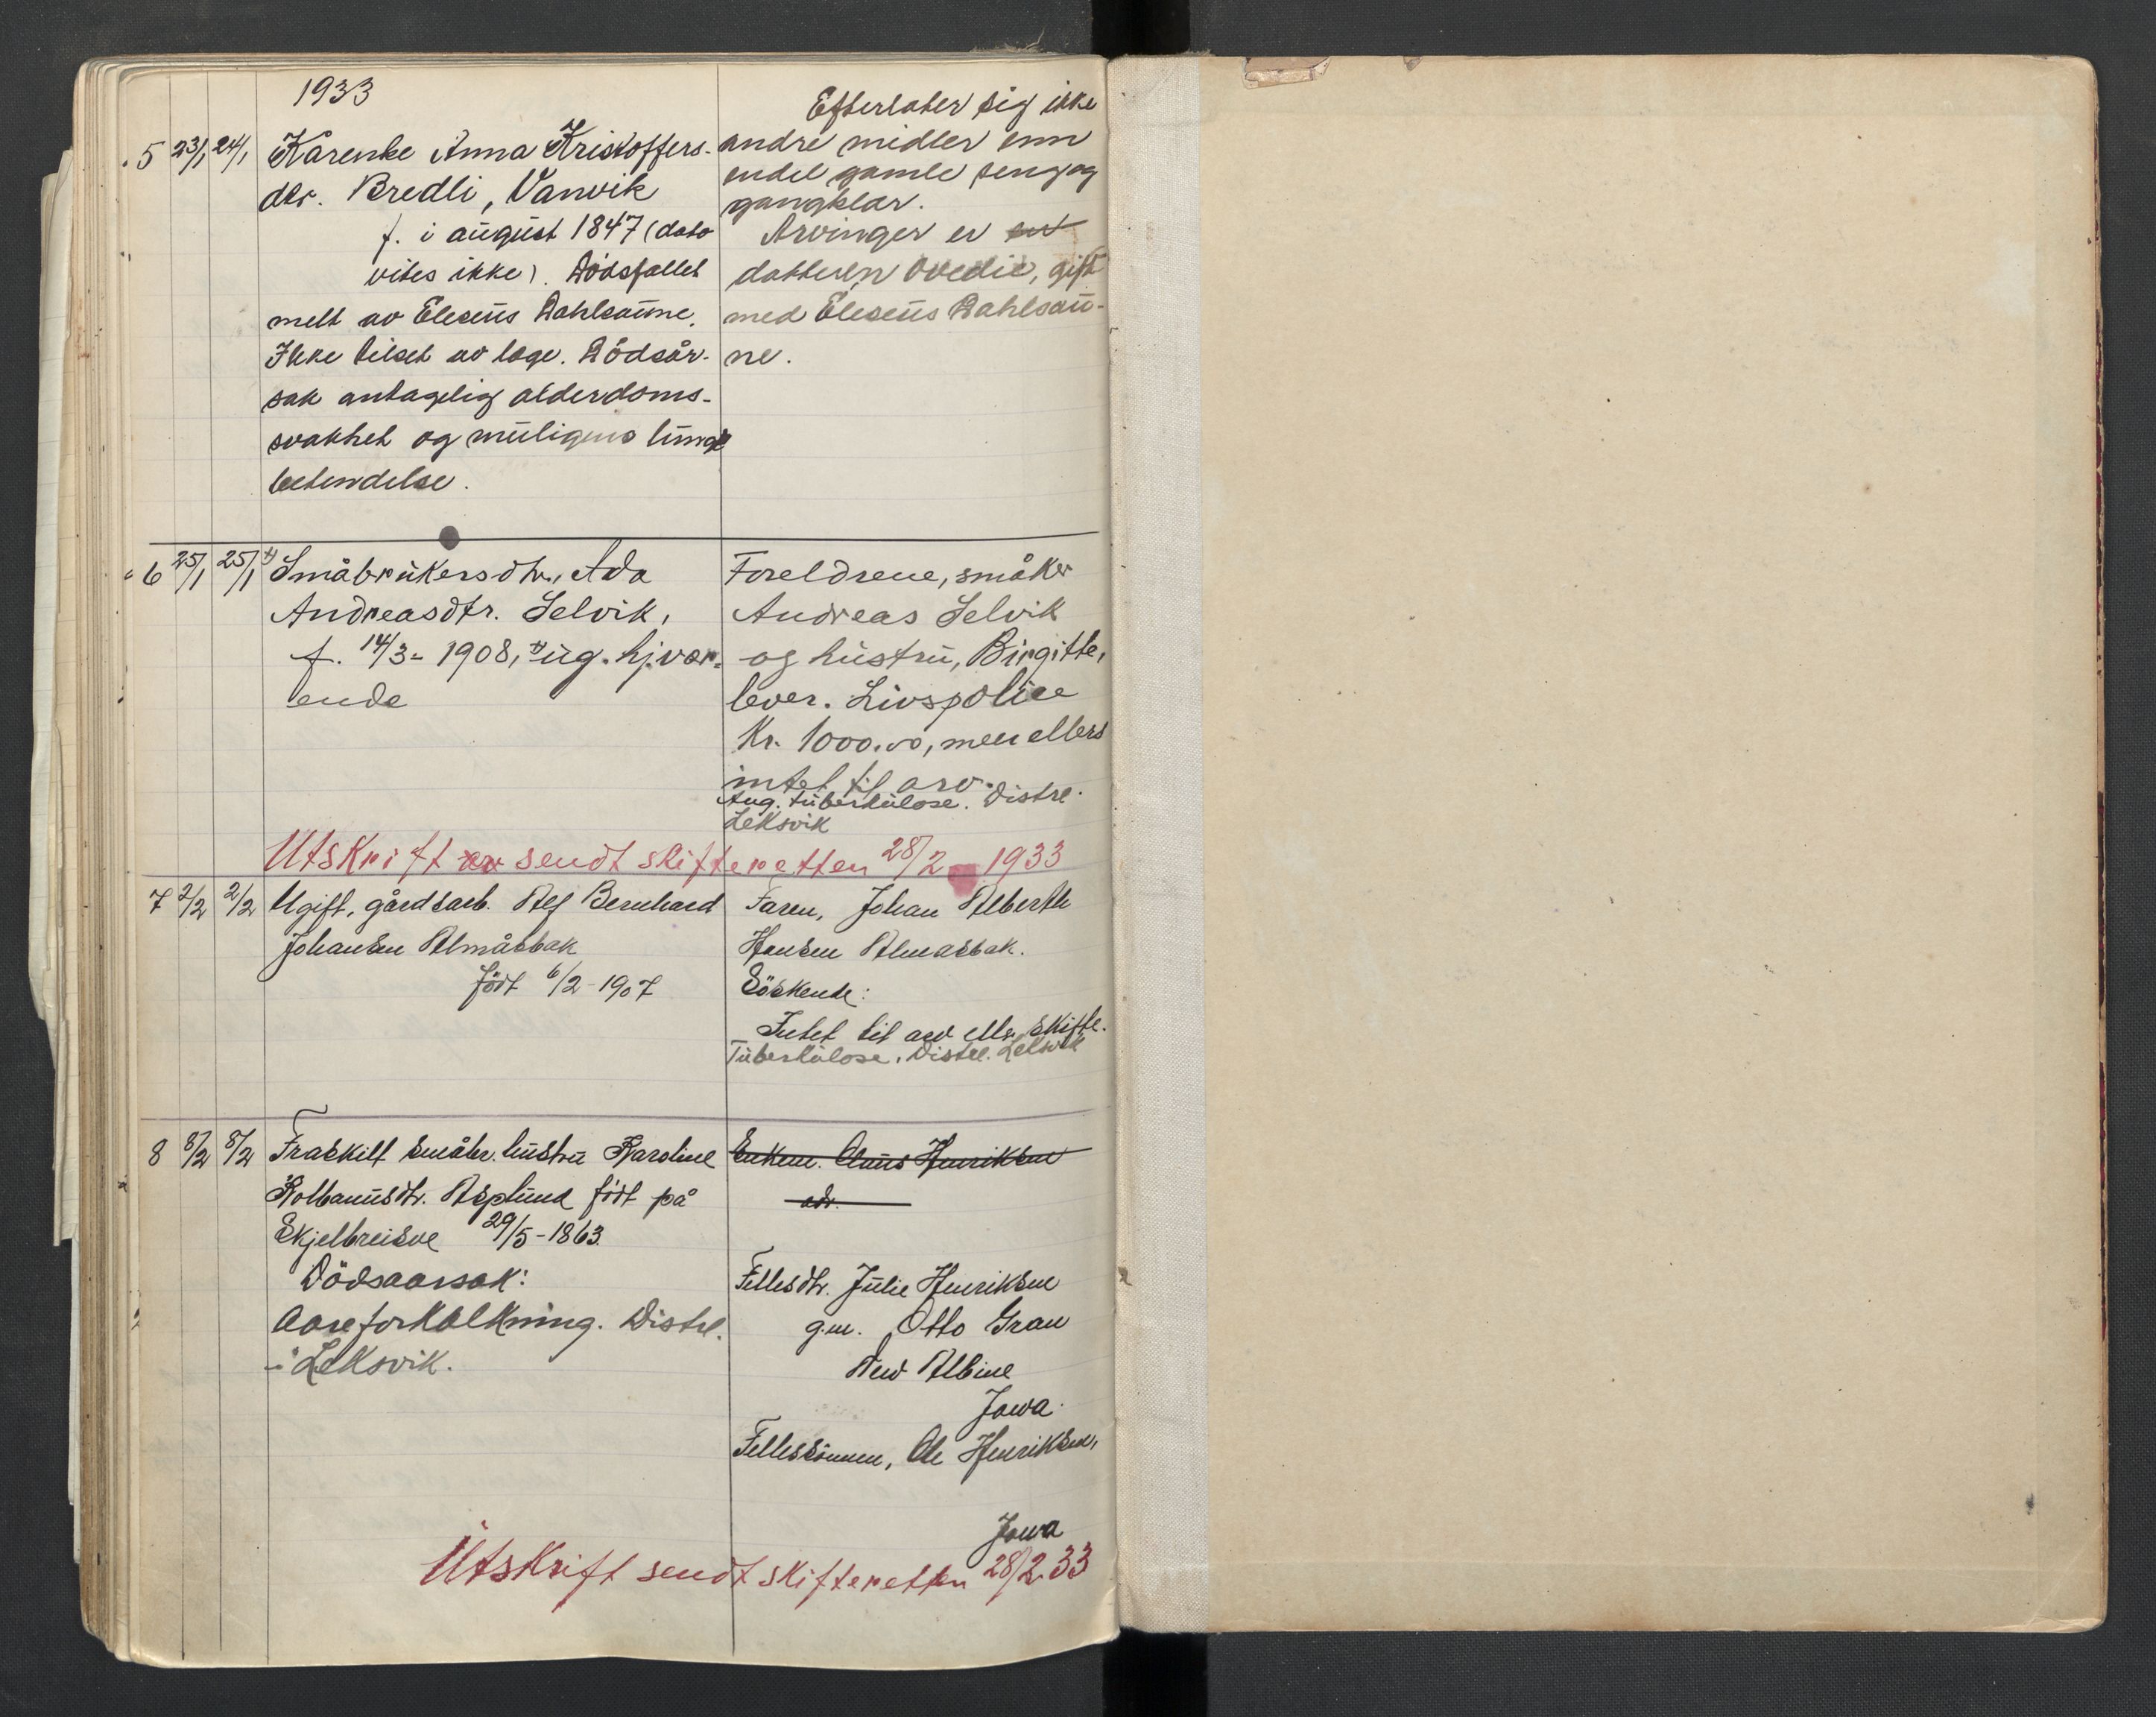 1933
5 23/1 24/1 Kårenke Anna Kristoffers-
dtr. Bredli, Vanvik
f. i august 1847 (dato
vites ikke). Dödsfallet
melt av Eleseus Dahlsaune.
Ikke tilset av læge. Dödsår-
sak antagelig alderdoms-
svakhet og muligens lunge
betendelse.
Efterlater sig ikke
andre midler enn
endel gamle seng og
gangklær.
Arvinger er en
datteren Ovedie, gift
med Eleseus Dahlsau-
ne.
6 25/1 25/1 Småbrukersdtr., Ada
Andreasdtr. Selvik,
f. 14/3- 1908, ug. hj.vær-
ende
Foreldrene, småbr
Andreas Selvik
og hustru, Birgitte,
lever. Livspolice
Kr. 1000.00, men ellers
intet til arv.
Ang. tuberkulose. Distrl.
Leksvik
Utskrift av sendt skifteretten 28/2 - 1933
7 2/2 2/2 Ugift, gårdsarb. Alf Bernhard
Johansen Almåsbak
född 6/2 - 1907
Faren, Johan Alberth
Hansen Almåsbak.
Söskende:
Intet til arv eller skifte.
Tuberkulose. Distrl. Leksvik
8 8/2 8/2 Fraskilt småbr. hustru Karoline
Kolbanusdtr. Asplund född på
Skjelbreisve 29/5-1863.
Dödsaarsak:
Aareforkalkning. Distrl.
i Leksvik.
Enkem. Claus Henriksen
adr.
Fellesdtr. Julie Henriksen
g.m. Otto Gran
New Albine
Jowa
Fellessönnen, Ole Henriksen,
Jowa
Utskrift sendt skifteretten 28/2 33